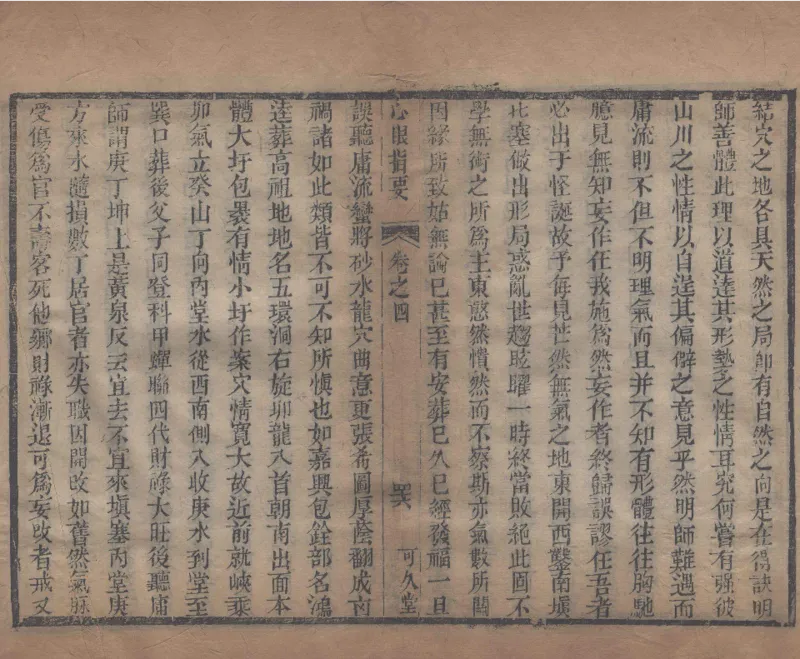 結穴之地各具天然之局即有自然之向是在得訣明
師善體此理以道達其形勢之性情耳究何嘗有强彼
山川之性情以自逞其偏僻之意見乎然明師難遇而
庸流則不但不明理氣而且并不知有形體往往胸馳
臆見無知妄作任我施爲然妄作者終歸誤謬任吾者
必出于怪誕故予每見茫然無氣之地東開西鑿南塡
北塞做出形局惑亂世趨眩曜一時終當敗絕此固不
學無術之所爲主東憖然憒然而不察斯亦氣數所關
因緣所致姑無論已甚至有安葬已久已經發福一旦
心眼指要
卷之四
可久堂
誤聽庸流蠻將砂水龍穴曲意更張希圖厚蔭翻成
禍諸如此類皆不可不知所愼也如嘉興包銓部名鴻
逵葬高祖地地名五環洞右旋卯龍入首朝南出面本
體大圩包裹有情小圩作案穴情寬大故近前就峽乘
卯氣立癸山丁向內堂水從西南側入收庚水到堂至
巽口葬後父子同登科甲蟬聯四代財祿大旺後聽庸
師謂庚丁坤上是黃泉反云宜去不宜來塡塞丙堂庚
方來水隨損數丁居官者亦失職因開改如舊然氣脉
受傷爲官不壽客死他鄉財祿漸退可爲妄改者戒又